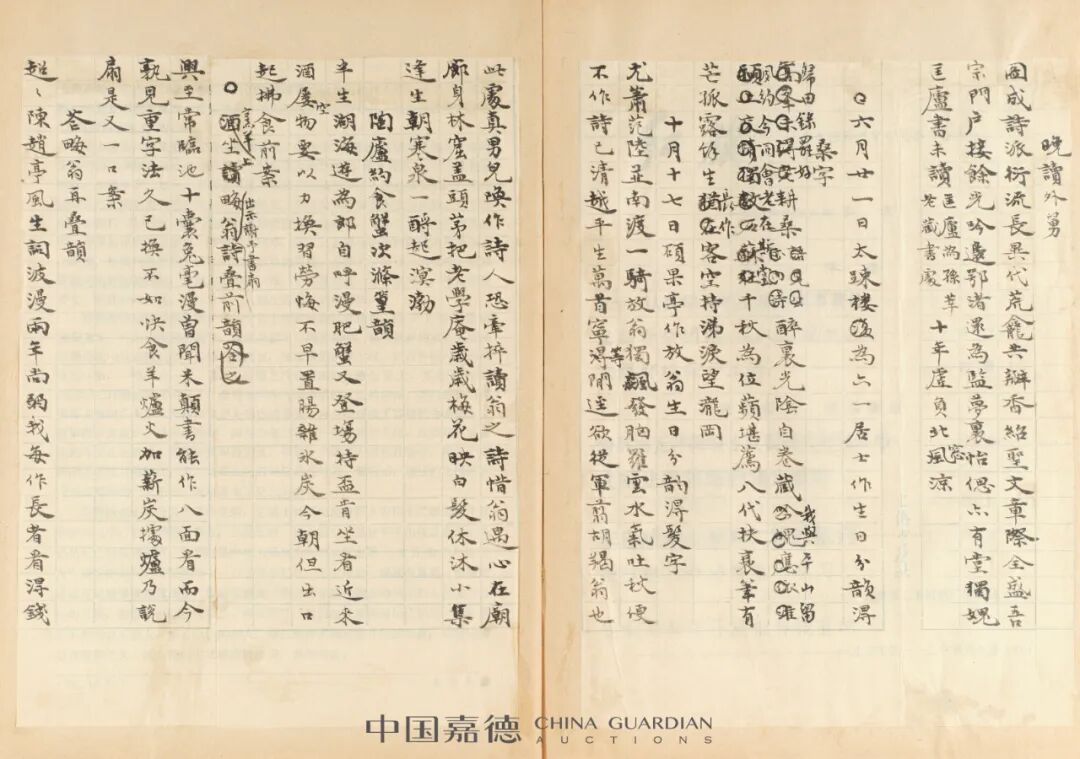 晚讀外舅
因成詩派衍流長異代荒龕共瓣香紹聖文章際全盛吾
宗門戶接餘光吟邊鄂渚還為監夢裏怡偲六有堂獨媿
匡廬書未讀匡廬為孫莘老藏書處十年虛負北窗風涼
六月廿一日太疎樓為六一居士作生日分韻得
桑字
歸田錄羅好耕桑醉裏光陰自卷藏我與平山留
千秋為位蘋堪薦八代扶衰筆有
芒孤露餘生在客空持涕淚望瀧岡
十月十七日碩果亭作放翁生日分韵得髮字
尤蕭范陸並南渡一騎放翁獨飆發胸羅雲水氣吐秋便
不作詩已清越平生萬首等得閒逕欲從軍翦胡羯翁也
此處真男兒喚作詩人恐牽拚讀翁之詩惜翁遇心在廟
廊身林窟蓋頭茅把老學庵歲歲梅花映白髮休沐小集
逢生朝寒泉一酹起溟渤
陶廬約食蟹次滌篁韻
半生湖海遊為郎自呼漫肥蟹又登場持盃肯坐看近來
酒屢空物要以力換習勞悔不早置腸雜氷炭今朝但出口
起拂食前案
酒坐讀晦翁詩疊前韻
興至常臨池十囊兔毫漫曾聞米顛書能作八面看而今
孰見重字法久已換不如快食羊爐火加薪炭據爐乃說
扇是又一口案
荅晦翁耳疊韻
超超陳趙亭風生詞波漫兩年尚弼我每作長者看得錢
中国嘉德 CHINA GUARDIAN
AUCTIONS